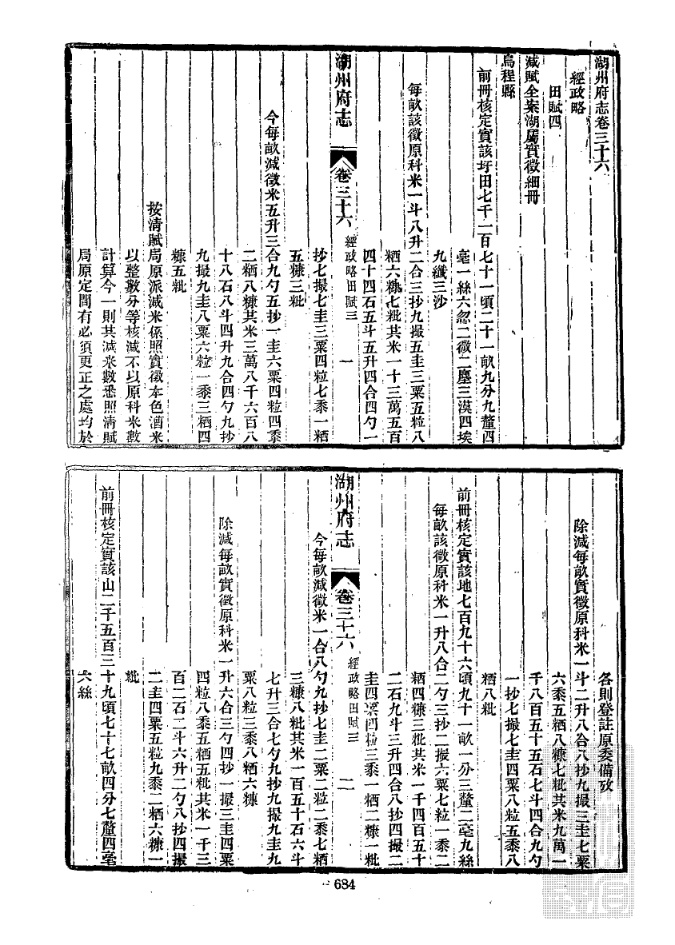 湖州府志卷三十六
經政略
田賦四
減賦全案湖屬實徵細冊
烏程縣
前冊核定實該圩田七千一百七十一頃二十一畝九分九釐四
毫一絲六忽二微二塵三漠四埃
九纖三沙
每畝該徵原科米一斗八升二合三抄九撮五圭三粟五粒八
粞六糠七粃其米一十三萬五百
四十四石五斗五升四合四勺一
湖州府志
卷三十六
經政略田賦三
一
抄七撮七圭三粟四粒七黍一粞
五糠三粃
今每畝減徵米五升三合九勺五抄一圭六粟四粒四黍
二粞八糠其米三萬八千六百八
十八石八斗四升九合四勺九抄
九撮九圭八粟六粒一黍三粞四
糠五粃
按清賦局原派減米係照實徵本色漕米
以整數分等核減不以原科米數
計算今一則其減米數悉照清賦
局原定間有必須更正之處均於
各則登註原委備攷
除減每畝實徵原科米一斗二升八合八抄九撮三圭七粟
六黍五粞八糠七粃其米九萬一
千八百五十五石七斗四合九勺
一抄七撮七圭四粟八粒五黍八
粞八粃
前冊核定實該地七百九十六頃九十一畝一分三釐二毫九絲
每畝該徵原科米一升八合二勺三抄二撮六粟七粒一黍二
粞四糠三粃其米一千四百五十
二石九斗三升四合八抄四撮二
圭四粟四粒三黍一粞二糠一粃
湖州府志
卷三十六
經政略田賦三
二
今每畝減徵米一合八勺九抄七圭二粟二粒二黍七粞
三糠八粃其米一百五十石六斗
七升三合七勺九抄九撮九圭九
粟八粒三黍八粞六糠
除減每畝實徵原科米一升六合三勺四抄一撮三圭四粟
四粒八黍五粞五粃其米一千三
百二石二斗六升二勺八抄四撮
二圭四粟五粒九黍二粞六糠一
粃
前冊核定實該山二千五百三十九頃七十七畝四分七釐四毫
六絲
684